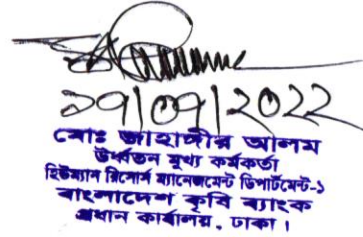 মোঃ জাহাঙ্গীর আলম
উর্ধ্বতন মুখ্য কর্মকর্তা
হিউম্যান রিসোর্স ম্যানেজমেন্ট ডিপার্টমেন্ট-১
বাংলাদেশ কৃষি ব্যাংক
প্রধান কার্যালয়, ঢাকা।